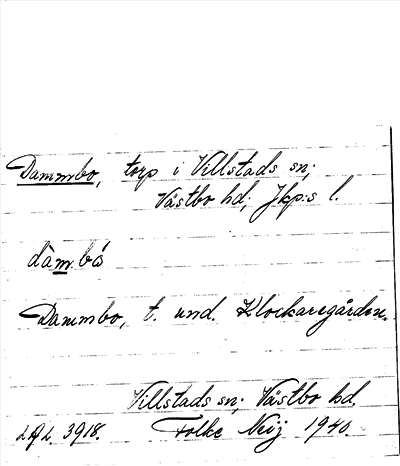 Dammbo, torp i Villstads sn;
Västbo hd; Jkp:s l.
dàmbó
Dammbo, t. und. Klockaregården.
Villstads sn; Västbo hd.
Folke Neij 1940.
3918.